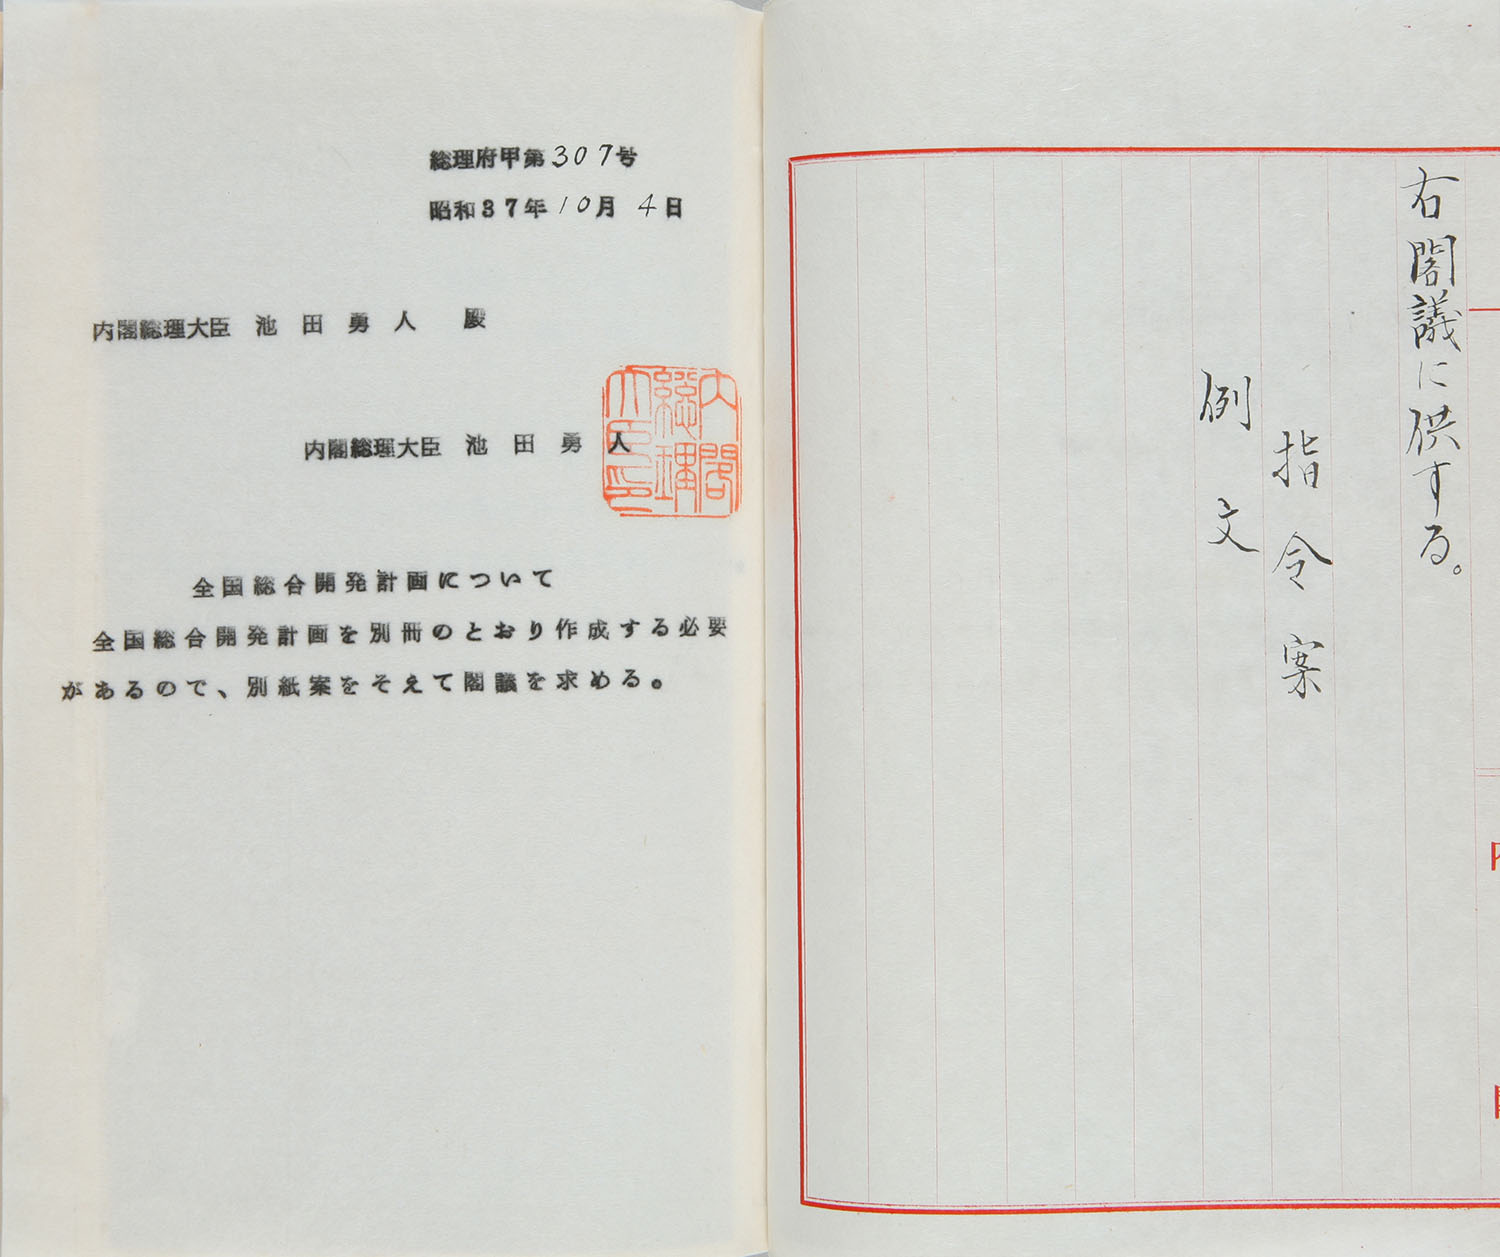 右閣議に供する。
指令案
例文
内
閣
総理府甲第307号
昭和37年10月4日
内閣総理大臣 池田勇人 殿
内閣総理大臣 池田勇人
内閣総理大臣印
全国総合開発計画について
全国総合開発計画を別冊のとおり作成する必要
があるので、別紙案をそえて閣議を求める。